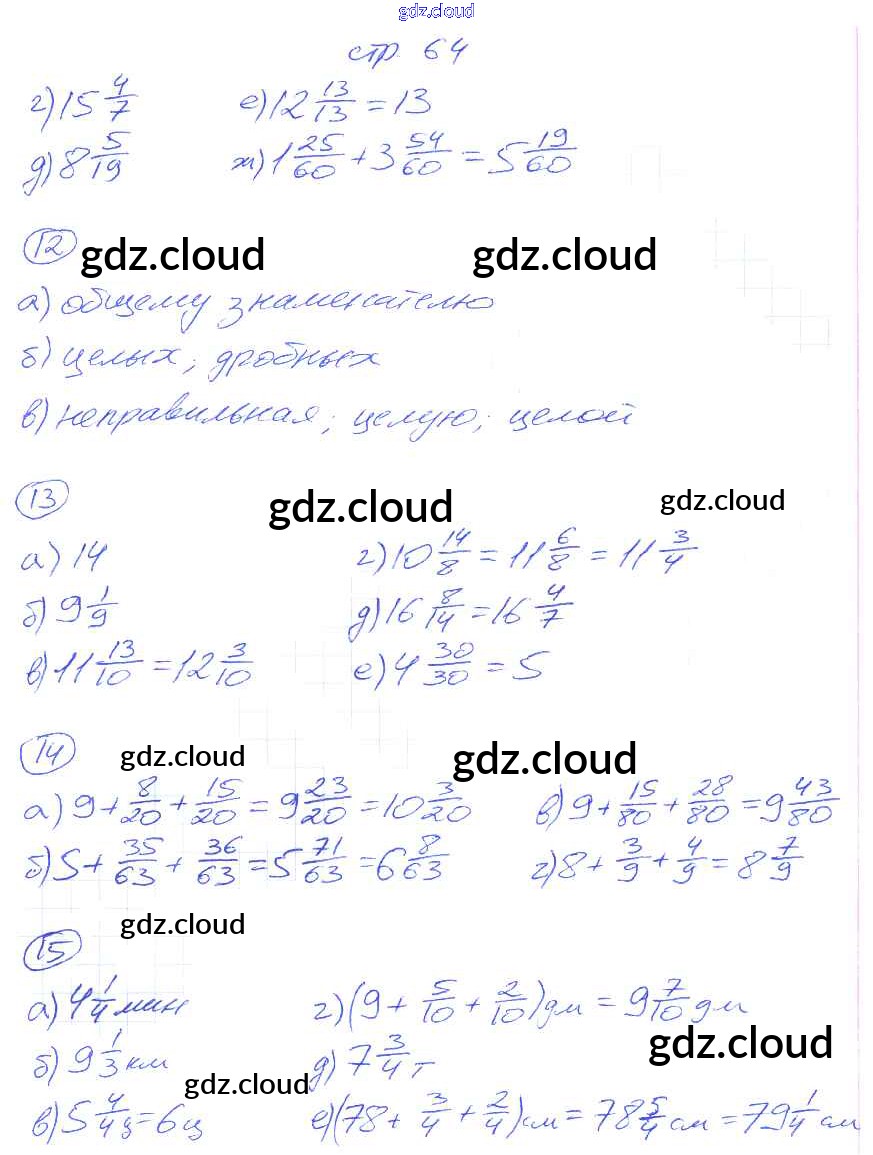 gdz.cloud
стр. 64
г) 15 4/7 е) 12 13/13 = 13
д) 8 5/19 ж) 1 25/60 + 3 54/60 = 5 19/60
12 gdz.cloud gdz.cloud
а) общему знаменателю
б) целых; дробных
в) неправильная; целую; целой
13 gdz.cloud gdz.cloud
а) 14 г) 10 14/8 = 11 6/8 = 11 3/4
б) 9 1/9 д) 16 8/14 = 16 4/7
в) 11 13/10 = 12 3/10 е) 4 30/30 = 5
14 gdz.cloud gdz.cloud
а) 9 + 8/20 + 15/20 = 9 23/20 = 10 3/20 в) 9 + 15/80 + 28/80 = 9 43/80
б) 5 + 35/63 + 36/63 = 5 71/63 = 6 8/63 г) 8 + 3/9 + 4/9 = 8 7/9
gdz.cloud
15
а) 4 1/4 мин г) (9 + 5/10 + 2/10) дм = 9 7/10 дм
gdz.cloud
б) 9 1/3 км д) 7 3/4 т
gdz.cloud
в) 5 4/4 ц = 6 ц е) (78 + 3/4 + 2/4) см = 78 5/4 см = 79 1/4 см